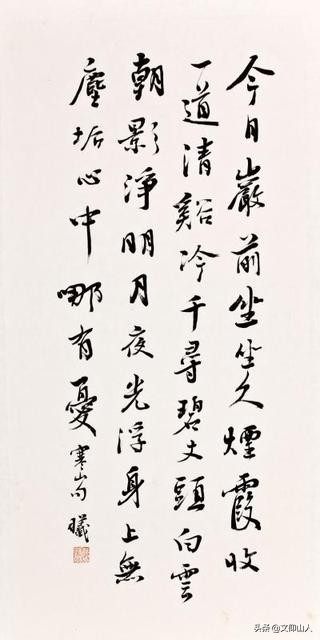 今日巖前坐坐久煙霞收
一道清谿冷千尋碧丈頭白雲
朝影淨明月夜光浮身上無
塵垢心中哪有憂
寒山句 曦
头条 @文仰山人